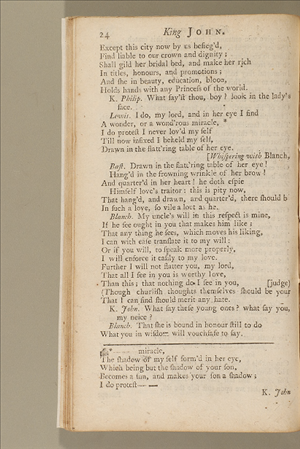 24 King JOHN.
Except this city now by us besieg'd,
Find liable to our crown and dignity;
Shall gild her bridal bed, and make her rich
In titles, honours, and promotions;
And she in beauty, education, blood,
Holds hands with any Princess of the world.
K. Philip. What say'st thou, boy? look in the lady's
face.
Lewis. I do, my lord, and in her eye I find
A wonder, or a wond'rous miracle, *
I do protest I never lov'd my self
Till now infixed I beheld my self,
Drawn in the flatt'ring table of her eye.
[Whispering with Blanch,
Bast. Drawn in the flatt'ring table of her eye!
Hang'd in the frowning wrinkle of her brow!
And quarter'd in her heart! he doth espie
Himself love's traitor: this is pity now,
That hang'd, and drawn, and quarter'd, there should b
In such a love, so vile a lout as he.
Blanch. My uncle's will in this respect is mine,
If he see ought in you that makes him like;
That any thing he sees, which moves his liking,
I can with ease translate it to my will:
Or if you will, to speak more properly,
I will enforce it easily to my love.
Further I will not flatter you, my lord,
That all I see in you is worthy love,
Than this; that nothing do I see in you, [judge)
(Though churlish thoughts themselves should be your
That I can find should merit any hate.
K. John. What say these young ones? what say you,
my neice?
Blanch. That she is bound in honour still to do
What you in wisdom will vouchsafe to say.
* — miracle,
The shadow of my self form'd in her eye,
Which being but the shadow of your son,
Becomes a sun, and makes your son a shadow;
I do protest— —
K. John